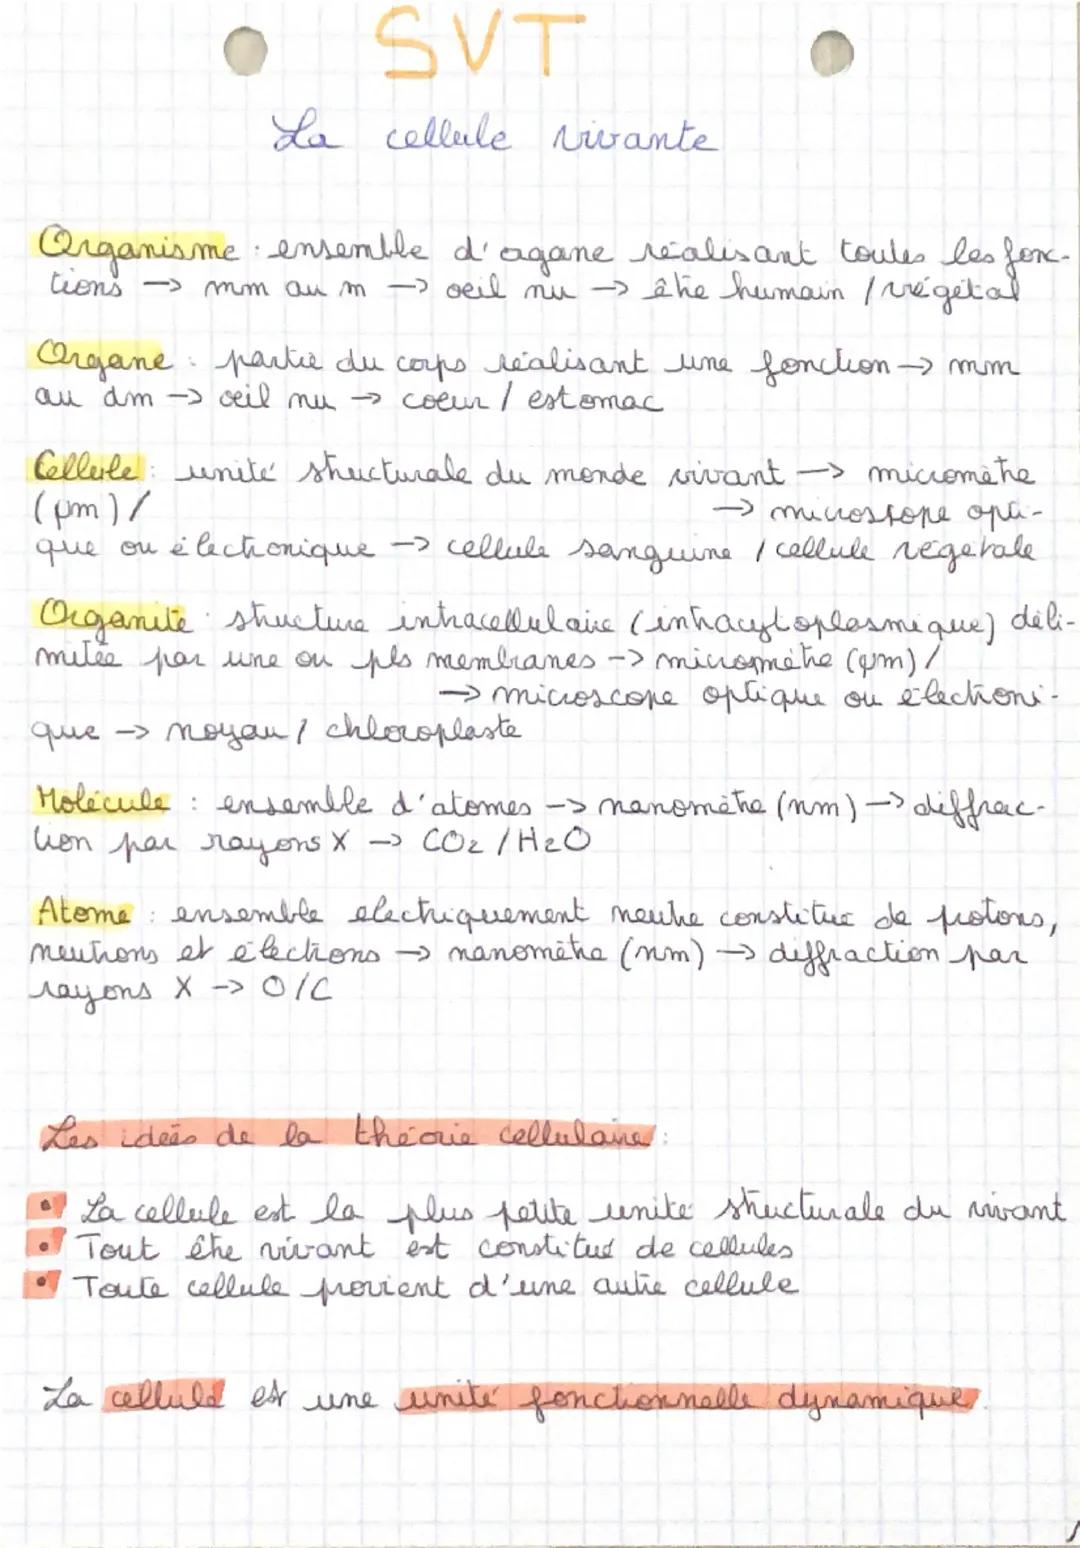 SVT
La cellule vivante
Organisme : ensemble d'organe réalisant toutes les fonc-
tions -> mm au m -> oeil nu -> être humain / végétal
Organe : partie du corps réalisant une fonction -> mm
au dm -> oeil nu -> coeur / estomac
Cellule : unité structurale du monde vivant -> micromètre
(µm) /
-> microscope opti-
que ou électronique -> cellule sanguine / cellule végétale
Organite : structure intracellulaire (intracytoplasmique) déli-
mitée par une ou pls membranes -> micromètre (µm) /
-> microscope optique ou électroni-
que -> noyau / chloroplaste
Molécule : ensemble d'atomes -> nanomètre (nm) -> diffrac-
tion par rayons X -> CO2 / H2O
Atome : ensemble electriquement neutre constitué de protons,
neutrons et électrons -> nanomètre (nm) -> diffraction par
rayons X -> O/C
Les idées de la théorie cellulaire :
• La cellule est la plus petite unité structurale du vivant
• Tout être vivant est constitué de cellules
• Toute cellule provient d'une autre cellule
La cellule est une unité fonctionnelle dynamique.